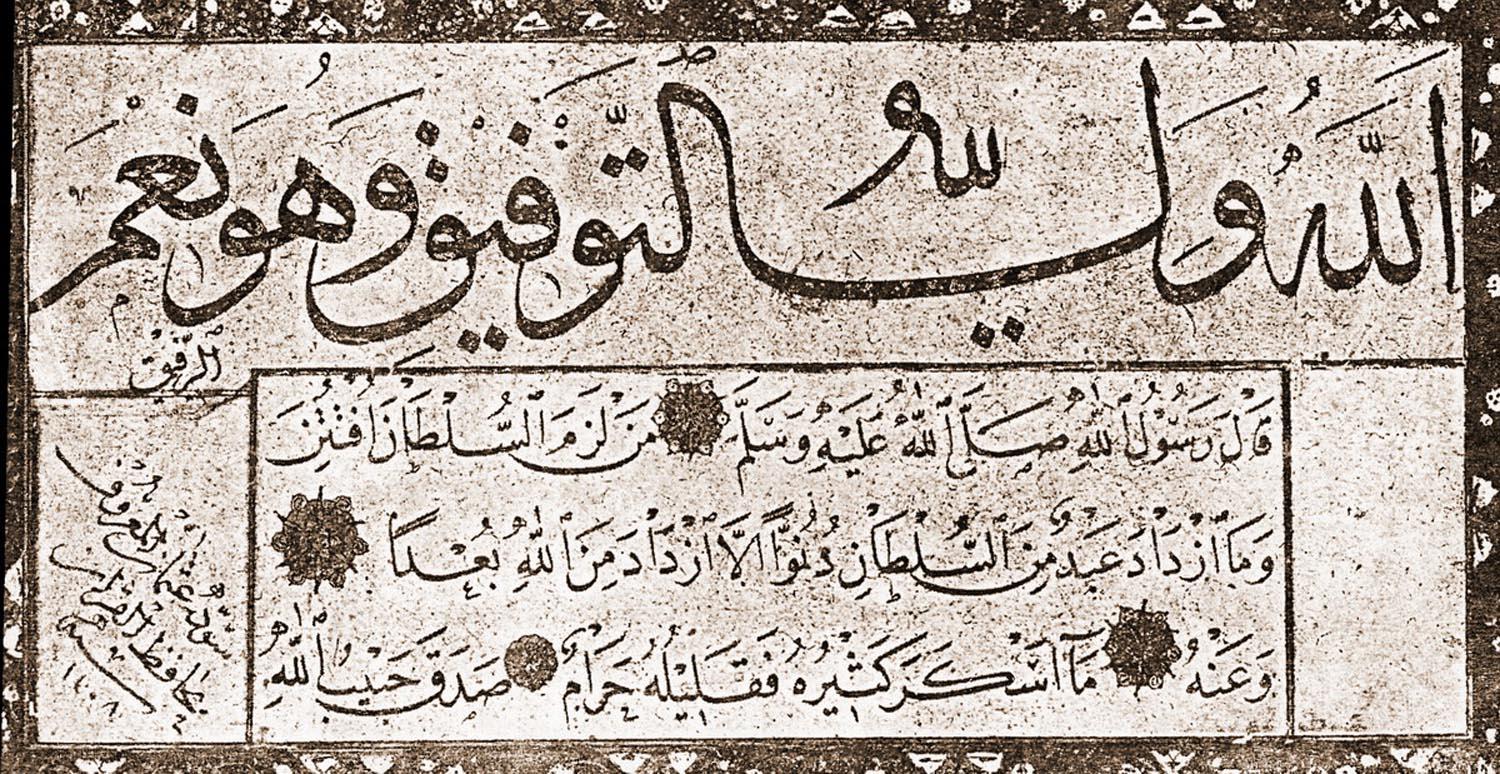 اللّٰهُ وَلِيُّ التَّوْفِيقِ وَهُوَ نِعْمَ
الرَّفِيقُ
قَالَ رَسُوْلُ اللّٰهِ صَلَّى اللّٰهُ عَلَيْهِ وَسَلَّمَ مَنْ لَزِمَ السُّلْطَانَ افْتُتِنَ
وَمَا ازْدَادَ عَبْدٌ مِنَ السُّلْطَانِ دُنُوًّا اِلَّا ازْدَادَ مِنَ اللّٰهِ بُعْدًا
وَعَنْهُ مَا اَسْكَرَ كَثِيْرُهُ فَقَلِيْلُهُ حَرَامٌ صَدَقَ حَبِيْبُ اللّٰهِ
سوّده عثمان المعروف
بحافظ القرآن